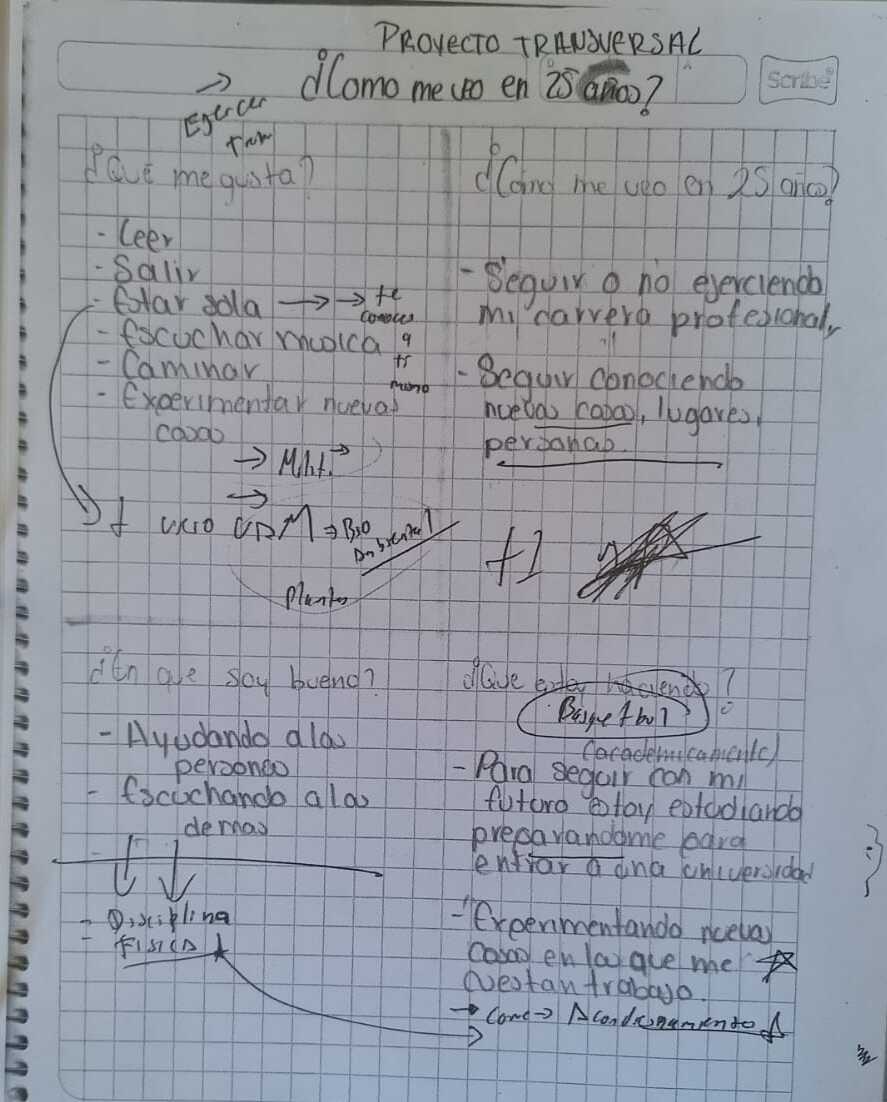 PROYECTO TRANSVERSAL
¿Como me veo en 25 años?
Scribe
¿Qué me gusta?
- Leer
- Salir
- Estar sola → → te
conoces
- Escuchar musica a
- Caminar
- Experimentar nuevas
cosas
→ Milit. →
→
UAM ⇒ Bio
Ambiental
Plantas
¿Cómo me veo en 25 años?
- Seguir o no ejerciendo
mi carrera profesional,
- Seguir conociendo
nuevas cosas, lugares,
personas.
+1
¿En que soy bueno?
- Ayudando a las
personas
- Escuchando a los
demas
- Disciplina
- FISICA
¿Que estoy haciendo?
Basquetbol
(academicamente)
- Para seguir con mi
futuro estoy estudiando
preparandome para
entrar a una universidad
- Experimentando nuevas
cosas en las que me
cuestan trabajo.
→ Como → Acondicionamiento